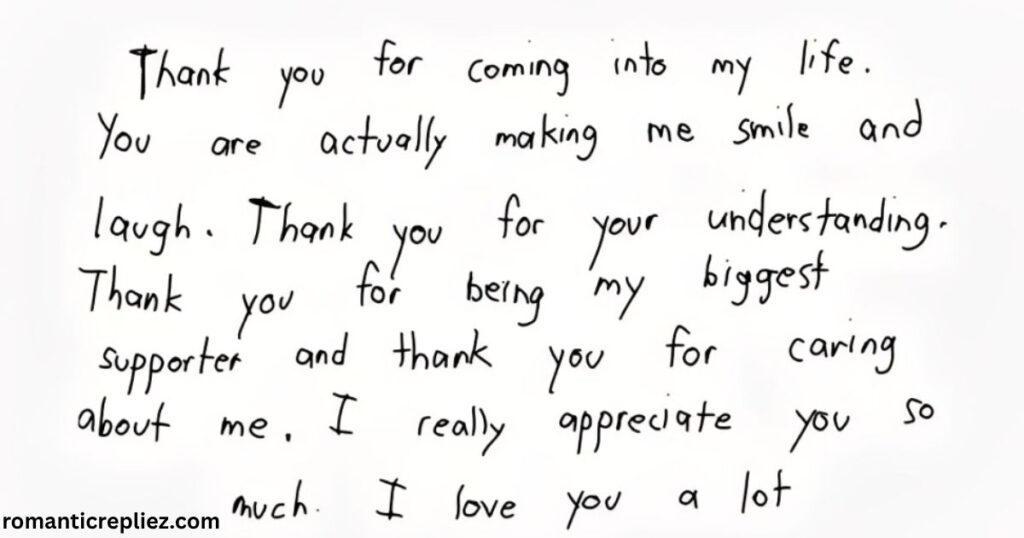 Thank you for coming into my life.
You are actually making me smile and
laugh. Thank you for your understanding.
Thank you for being my biggest
supporter and thank you for caring
about me. I really appreciate you so
much. I love you a lot
romanticrepliez.com